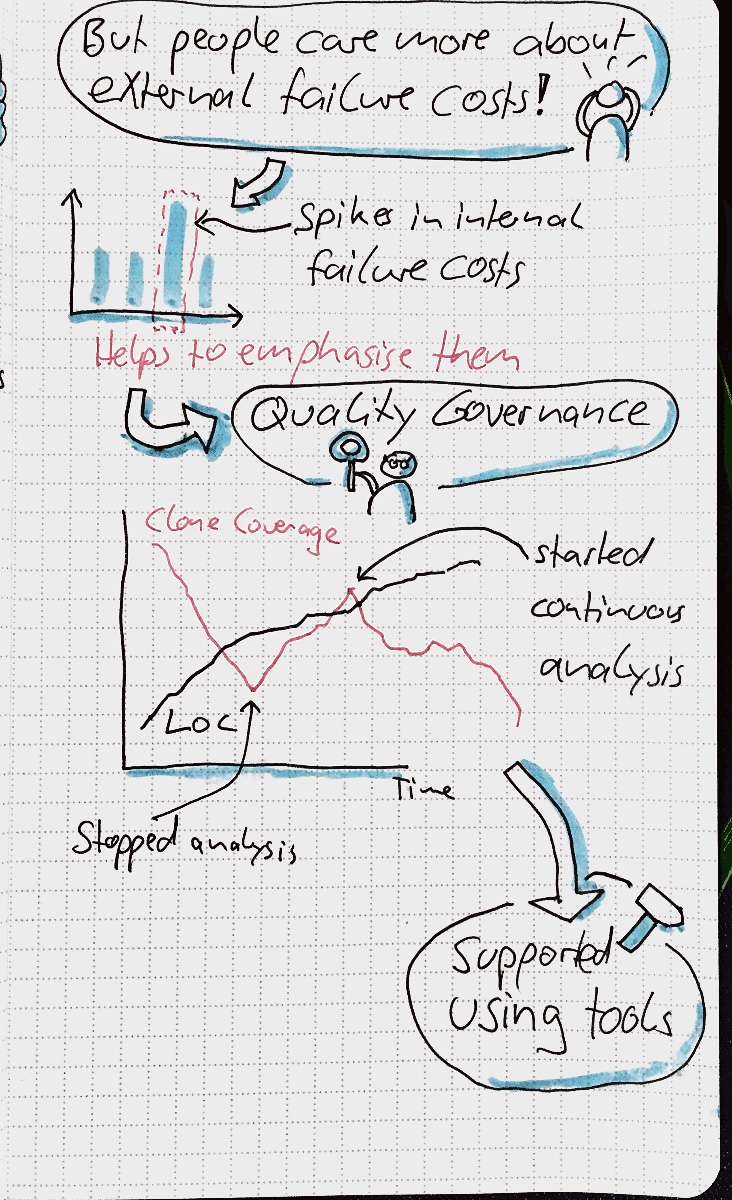 But people care more about
external failure costs!
Spikes in internal
failure costs
Helps to emphasise them
Quality Governance
Clone Coverage
started
continuous
analysis
LOC
Time
Stopped analysis
Supported
using tools